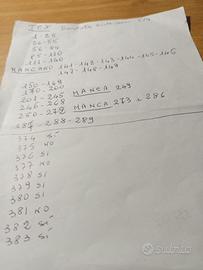 TEX
1-25
26-55
56-84
85-110
111-140
MANCANO 141-142-143-144-145-146
147-148-149
150-169
170-200
201-245 MANCA 249
246-268
250-272 MANCA 273 e 286
287-288-289
374 SI
375 NO
376 SI
377 NO
378 SI
379 SI
380 SI
381 NO
382 SI
383 SI
subito